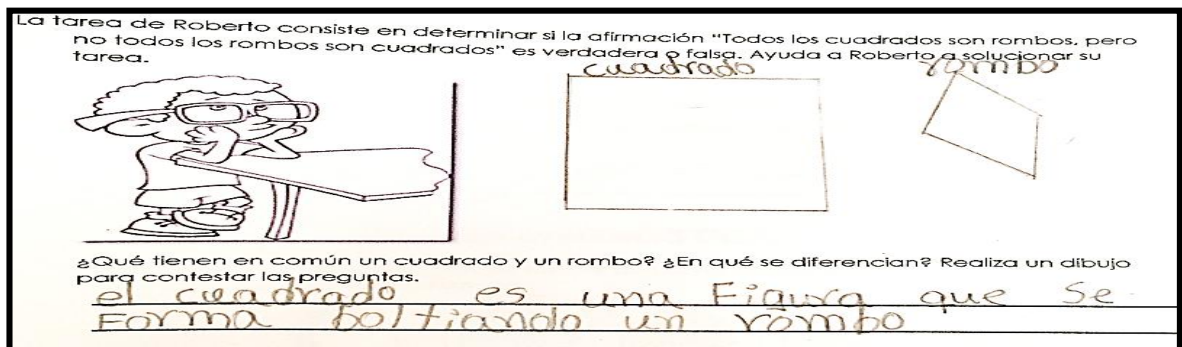 La tarea de Roberto consiste en determinar si la afirmación "Todos los cuadrados son rombos, pero
no todos los rombos son cuadrados" es verdadera o falsa. Ayuda a Roberto a solucionar su
tarea.
cuadrado rombo
¿Qué tienen en común un cuadrado y un rombo? ¿En qué se diferencian? Realiza un dibujo
para contestar las preguntas.
el cuadrado es una Figura que se
Forma boltiando un rombo